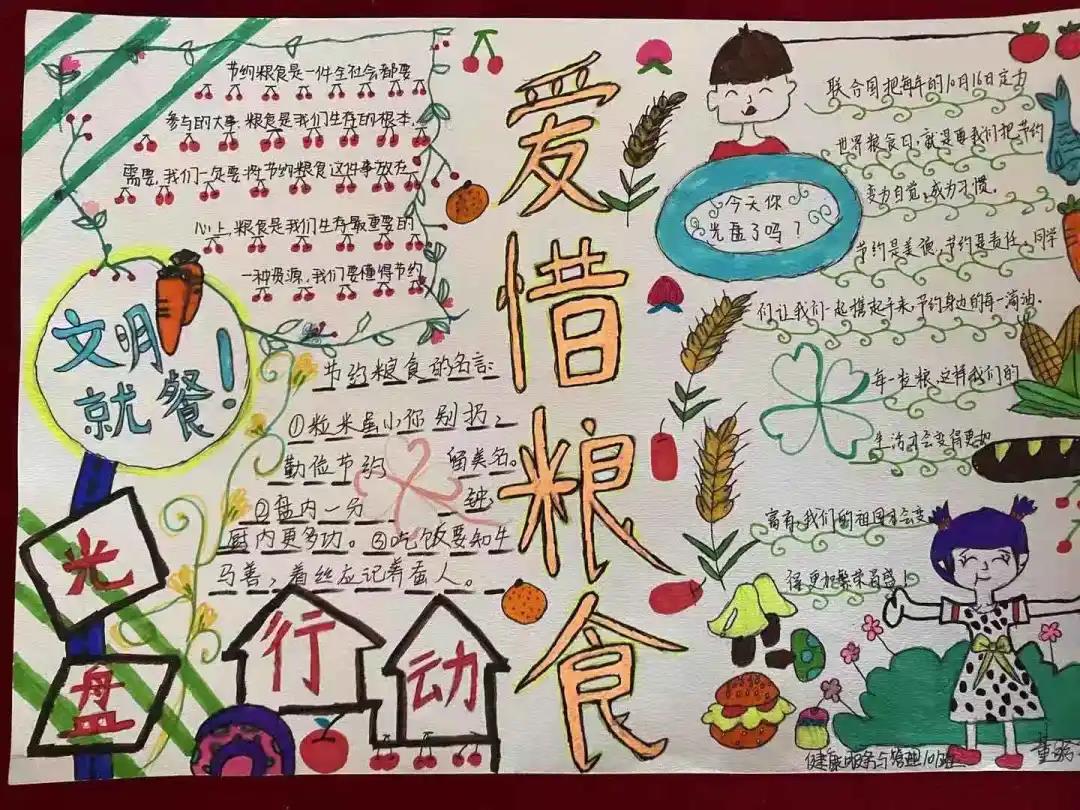 节约粮食是一件全社会都要
参与的大事.粮食是我们生存的根本.
需要.我们一定要将节约粮食这件事放在
心上.粮食是我们生存最重要的
一种资源.我们要懂得节约
文明
就餐!
节约粮食的名言:
①粒米虽小你别扔,
勤俭节约 留美名。
②盘内一分 钟,
厨内更多功。③吃饭要知牛
马善,着丝应记养蚕人。
光
盘
行
动
爱
惜
粮
食
今天你
光盘了吗?
联合国把每年的10月16日定为
世界粮食日,就是要我们把节约
变为自觉,成为习惯。
节约是美德,节约是责任,同学
们让我们一起携起手来,节约身边的每一滴油.
每一粒粮,这样我们的
生活才会变得更加
富有,我们的祖国才会变
得更加繁荣昌盛!
健康服务与管理101班
董